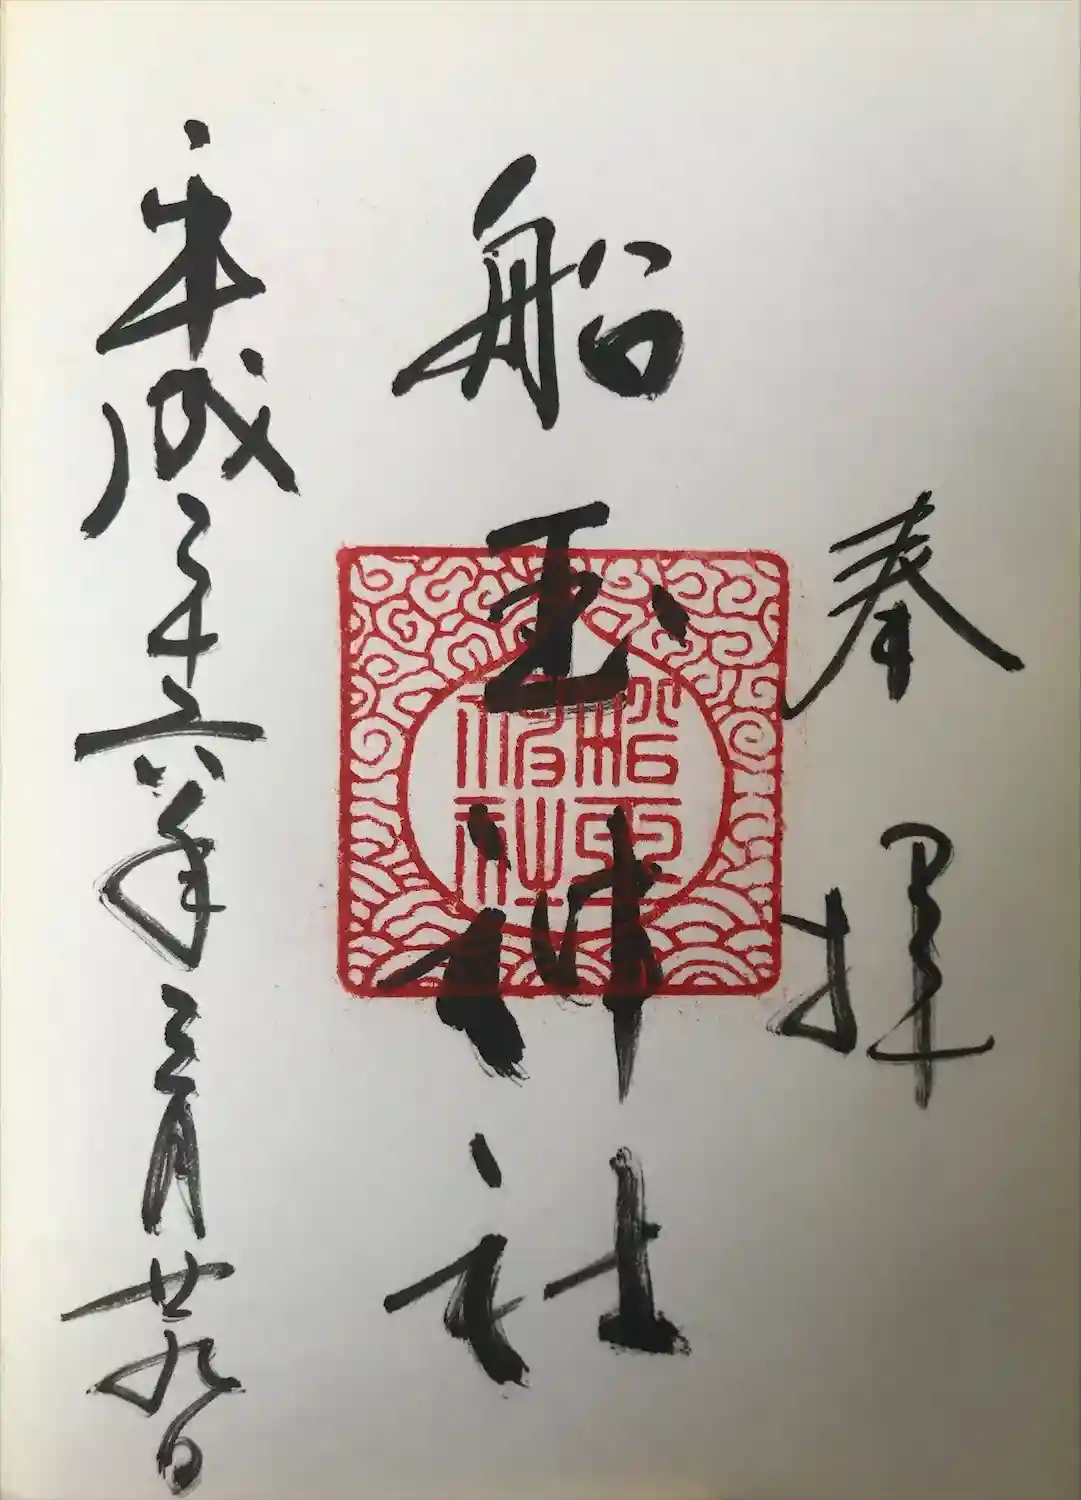 奉拝
船玉神社
平成二十六年三月廿九日
船玉神社